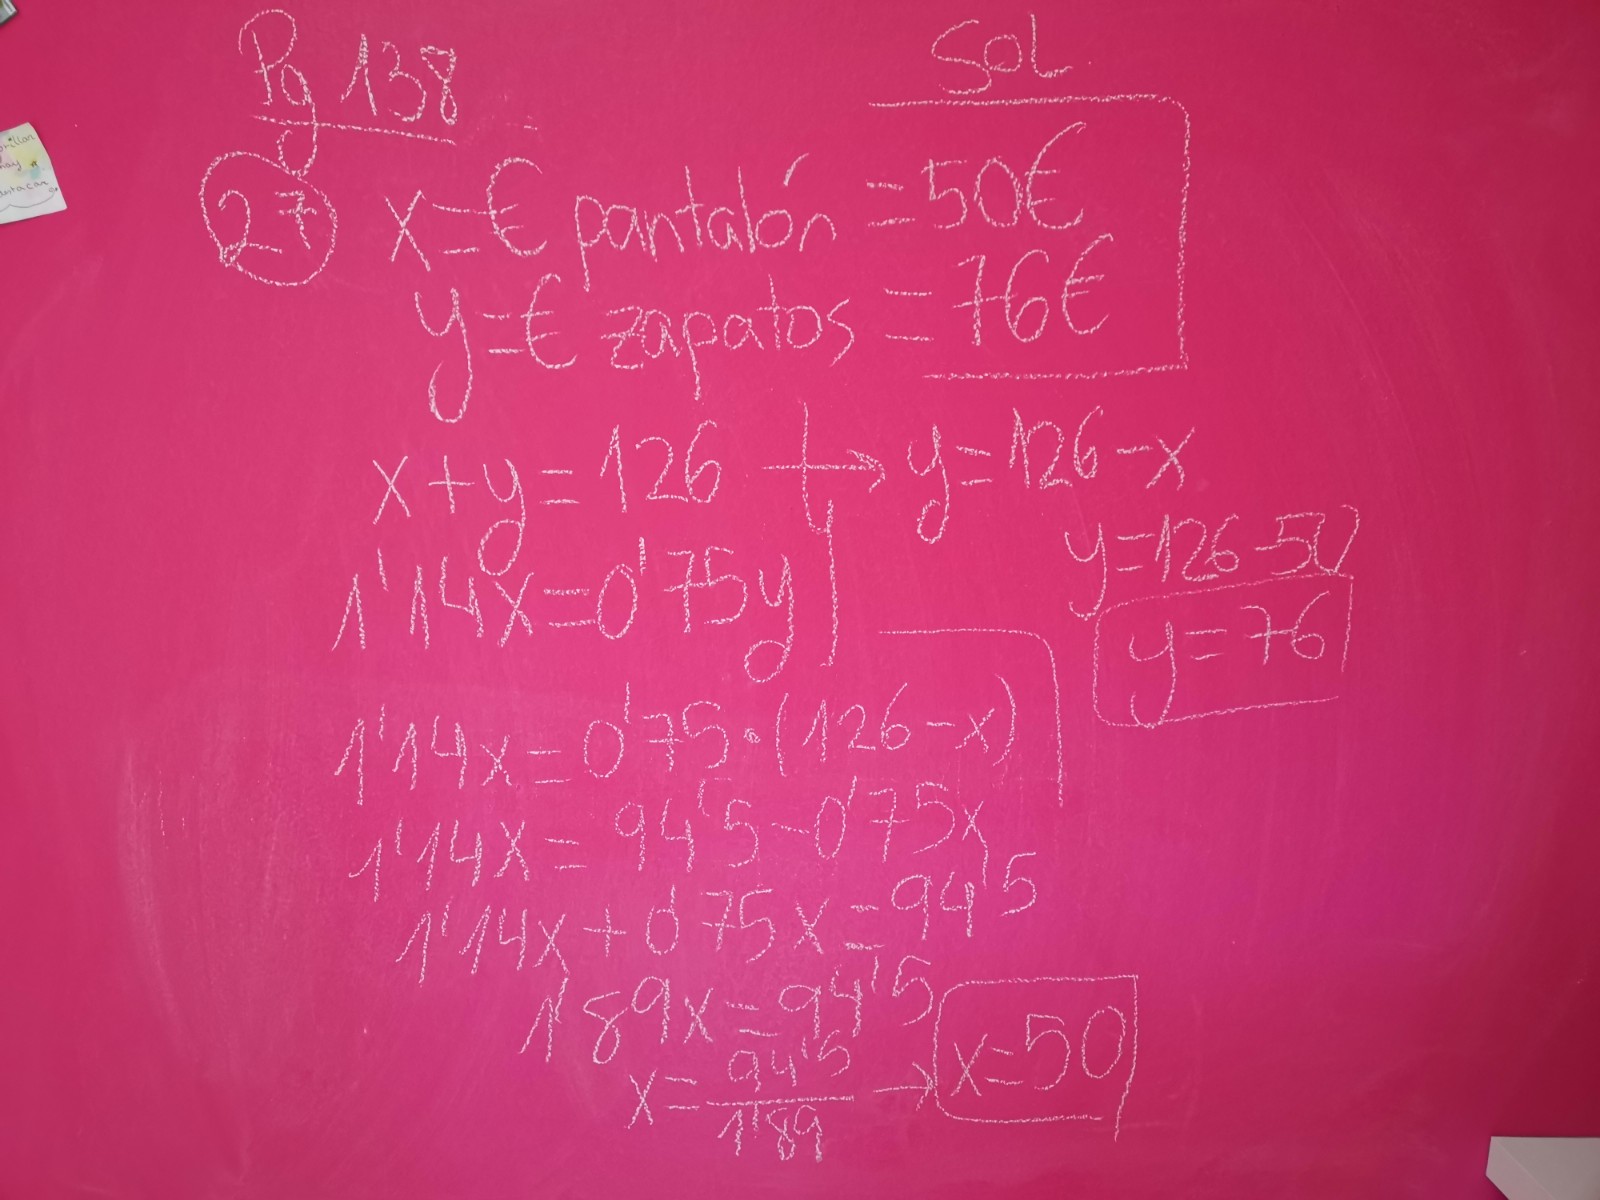 Pg 138
Sol
27 x=€ pantalón = 50€
y=€ zapatos = 76€
x+y=126 → y=126-x
y=126-50
1'14x=0'75y
y=76
1'14x=0'75·(126-x)
1'14x=94'5-0'75x
1'14x+0'75x=94'5
1'89x=94'5
x=94'5/1'89 → x=50